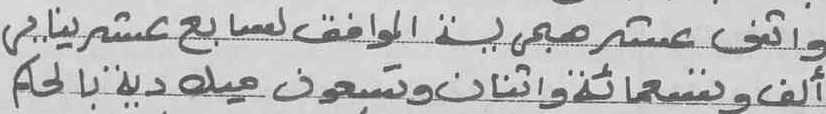 واثنى عشر هجرية الموافق لسابع عشر يناير
ألف وتسعمائة واثنان وتسعون ميلادية بالحكم